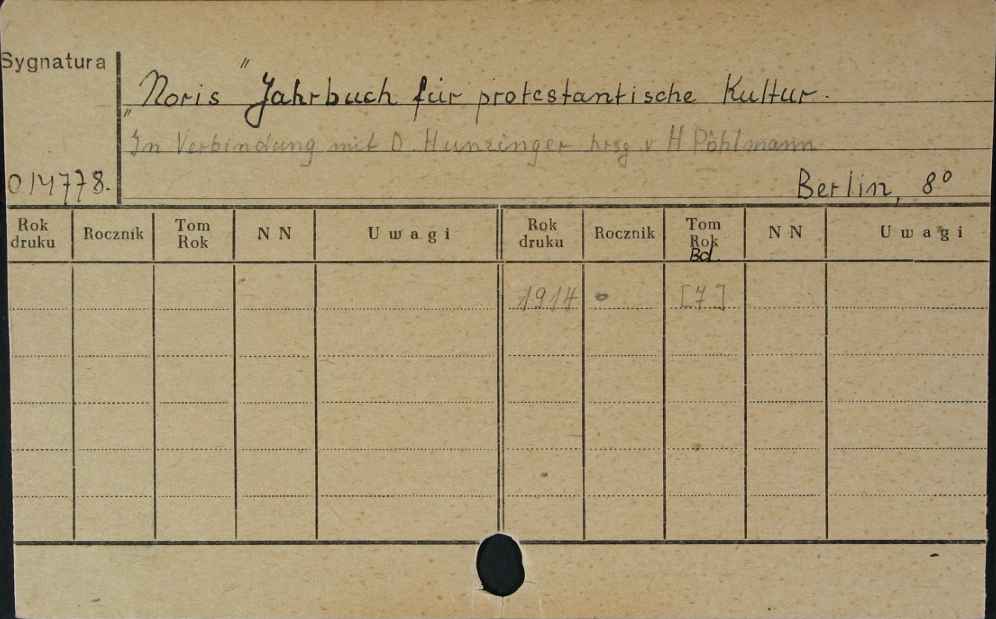 Sygnatura
„Noris" Jahrbuch für protestantische Kultur.
In Verbindung mit D. Hunzinger hrsg v H Pöhlmann
014778.
Berlin, 8°
Rok druku Rocznik Tom Rok N N Uwagi Rok druku Rocznik Tom Rok Bd. N N Uwagi
1914 [7]